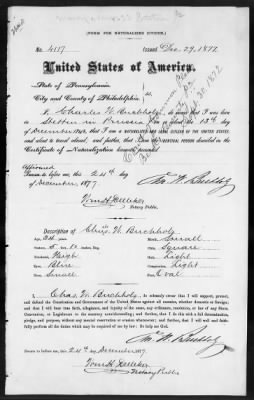 (FORM FOR NATURALIZED CITIZEN.)
No. 4117 Issued Dec 29, 1877
United States of America.
State of Pennsylvania,
City and County of Philadelphia,
I, Charles W. Buchholz, do swear that I was born
at Stettin in Prussia on or about the 13th day
of December 1848, that I am a NATURALIZED AND LOYAL CITIZEN OF THE UNITED STATES,
and about to travel abroad, and further, that I am the IDENTICAL PERSON described in the
Certificate of Naturalization herewith presented.
Affirmed
before me, this 24th
of December, 1877
Notary Public.
Description of Chas. W. Buchholz
Age, Mouth, Small
Stature, 5 ft. in. Eng. Square
Forehead, High Hair, Light
Eyes, Blue Complexion, Light
Nose, Small Face, Oval
I, Chas. W. Buchholz, do solemnly swear that I will support, protect, and
defend the Constitution and Government of the United States against all enemies, whether domestic or foreign; and
that I will bear true faith, allegiance, and loyalty to the same, any ordinance, resolution, or law of any State,
Convention, or Legislature to the contrary notwithstanding; and further, that I do this with a full determination,
pledge, and purpose, without any mental reservation or evasion whatsoever; and further, that I will well and faith-
fully perform all the duties which may be required of me by law: So help me God.
Sworn to before me, this 24th day December 1877.
Notary Public